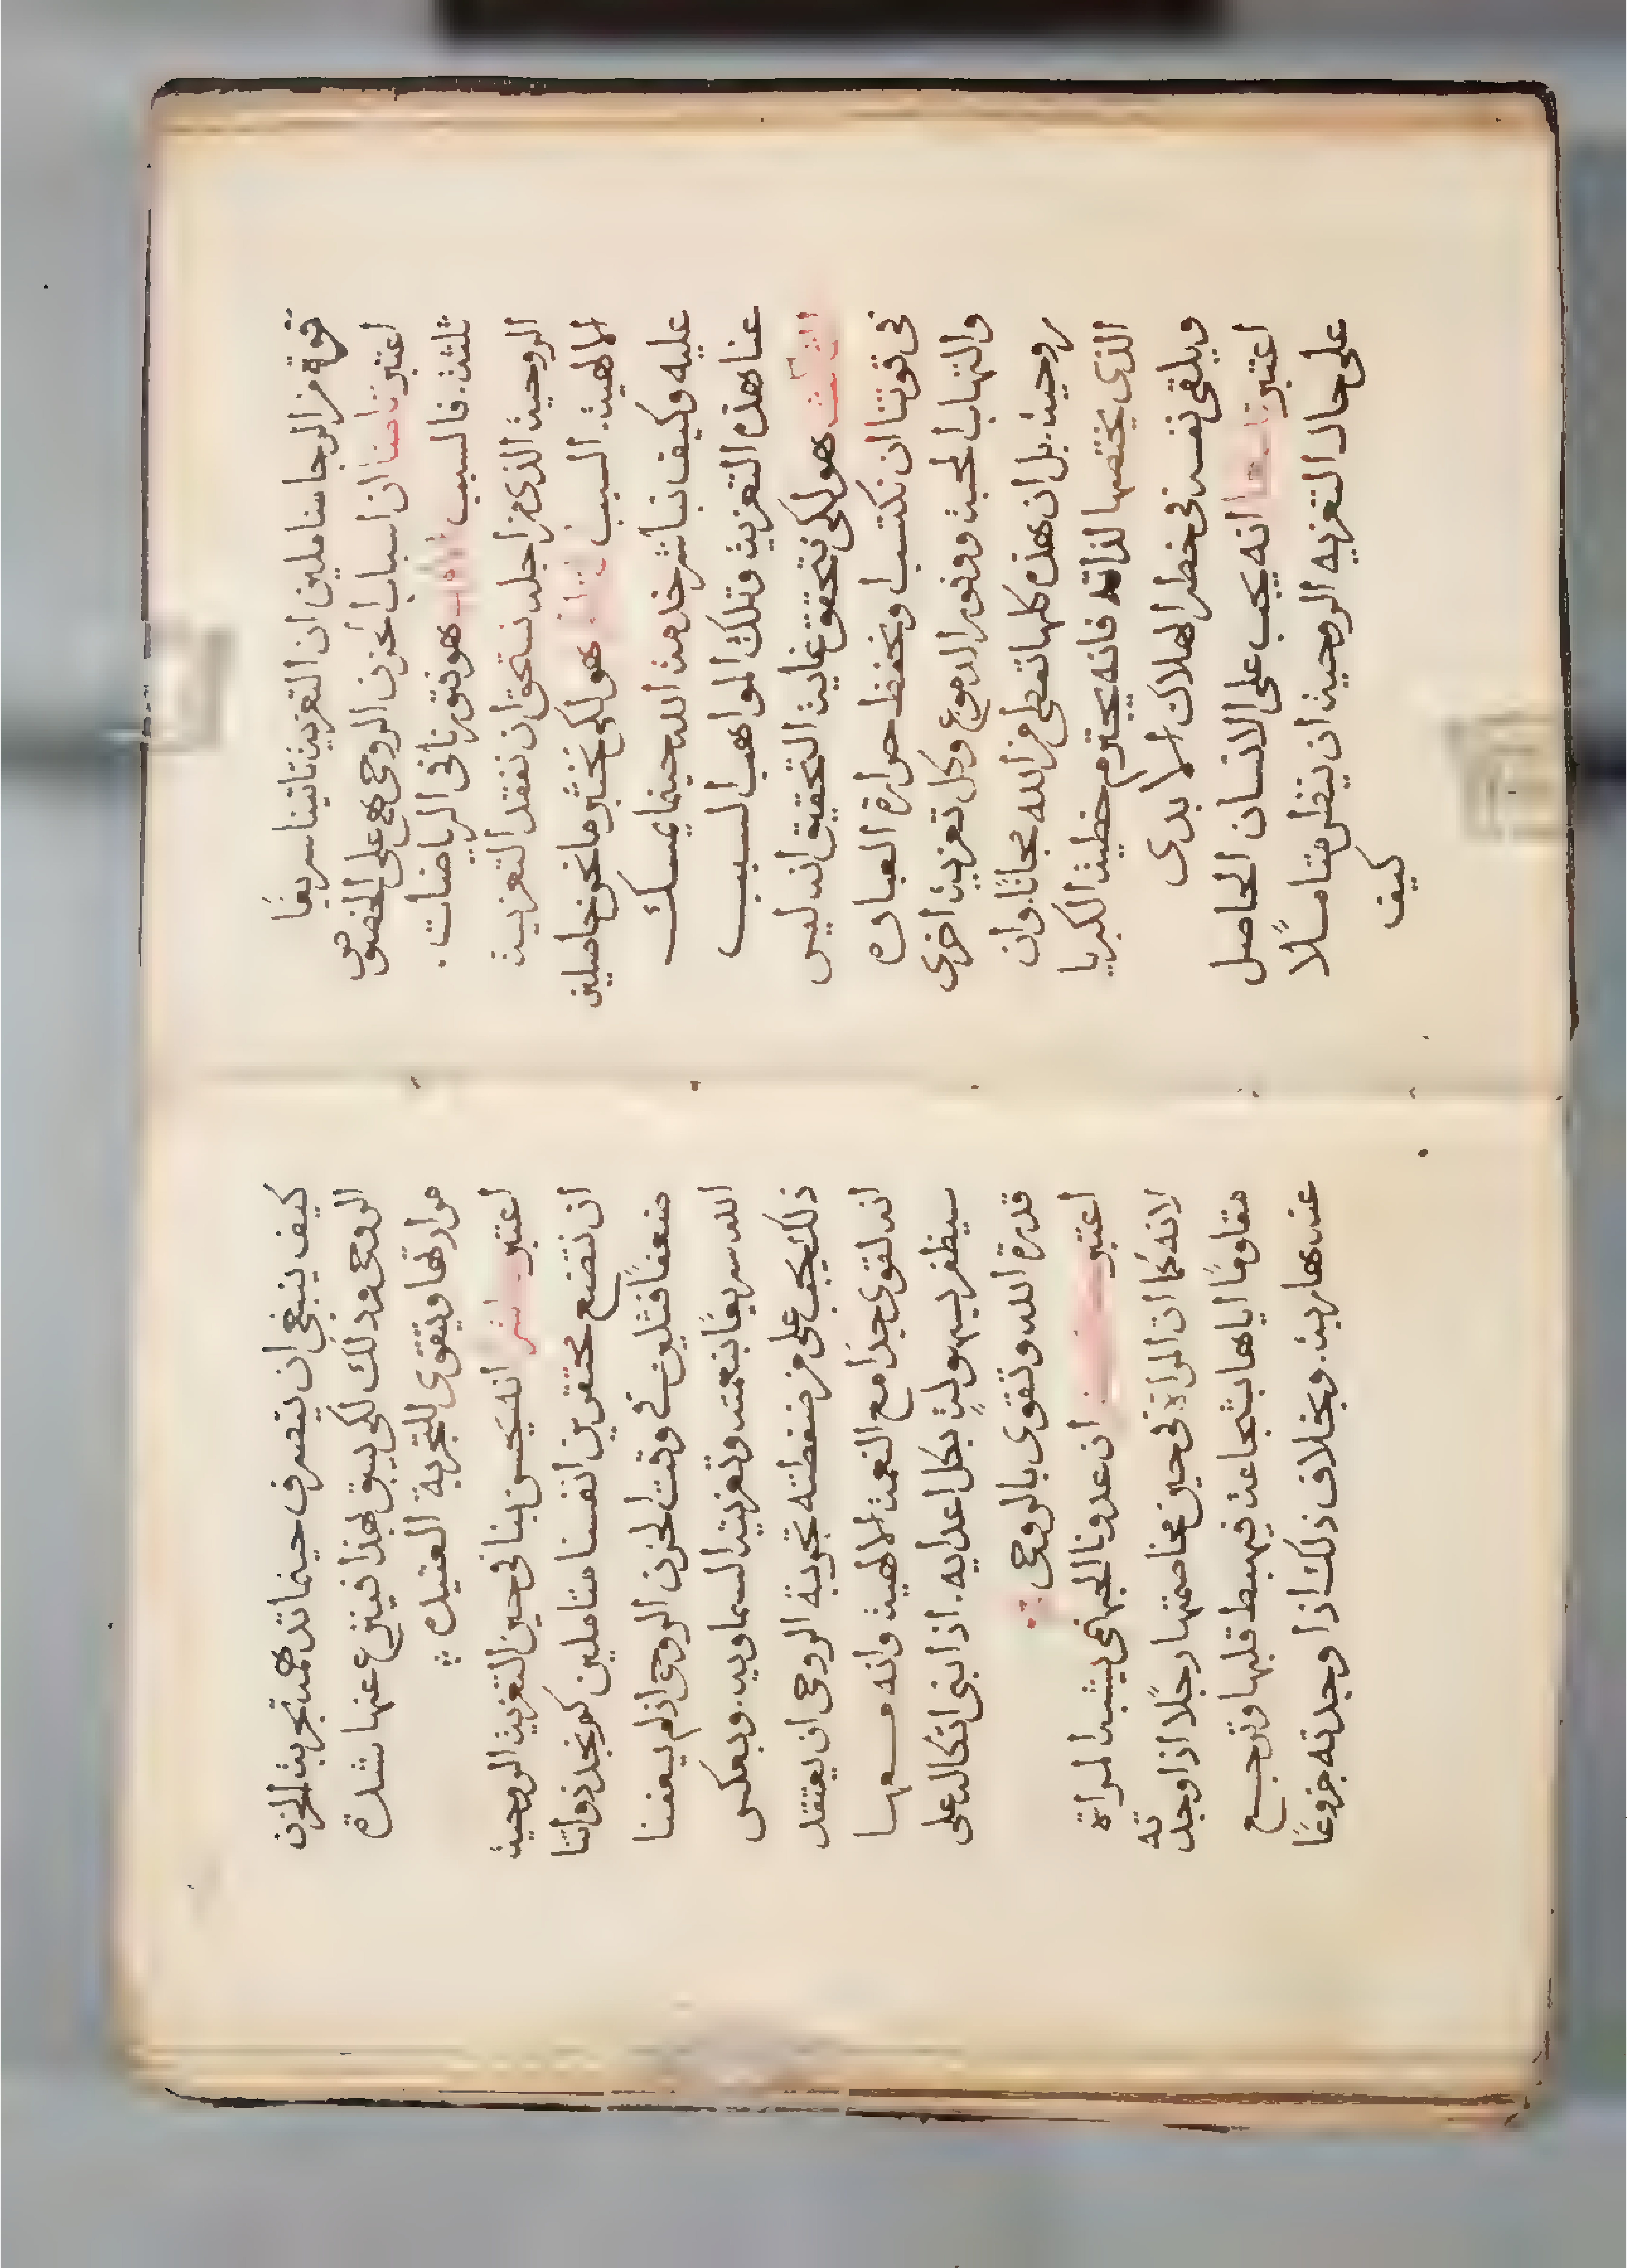 قوة من الرجا متاملين ان التعزيث تاتينا سريعًا
اعتبر ثامنا ان اسباب الحزن الروحي هي على الخصوص
ثلثث. فالسبب الاول هو فتورنا فى الرياضات.
الروحيث الذى من اجله نستحق ان نفقد التعزيث
الالاهيث. السبب الثانى هو لكي نختبر ما نحن حاصلين
عليه وكيف نباشر خدمث الله حينما يمسك
عنا هذه التعزيث وتلك المواهب السبب
الثالث هو لكي نتحقق غايث التحقيق انه ليس
فى قوتنا ان نكتسب او نحفظ حرارة العباده
والتهاب المحبث ووفور الدموع وكل تعزيث اخرى
روحيث. بل ان هذه كلها تعطى من الله مجانًا. وان
الذى يختصها لذاته فانه يجترم خطيث الكبريا
ويلقى نفسه فى خطر الهلاك الابدى
اعتبر تاسعا انه يجب على الانسان الحاصل
على حال التعزيه الروحيث ان ينظر متاملًا
كيف
كيف ينبغي ان يتصرف حينما تدهمه تجربث الحزن
الروحي وذلك لكي يسبق بهذا فينزع عنها شدة
مرارتها ويتقوى للتجربة العتيده
اعتبر عاشر انه يحسن بنا فى حين التعزيث الروحيث
ان نتضع محتقرين انفسنا متاملين كم نجد ذواتنا
ضعفًا فشلين فى وقت الحزن الروحي اذ لم يعفنا
الله سريعًا بنعمته وتعزيته السماويه. وبعكس
ذلك يجب على من ضغطته تجربة الروحي ان يعتقد
انه لقوى جدًا مع النعمث الالاهيث وانه معها
سيظفر بسهولثٍ بكل اعدايه. اذا بنى اتكاله على
قدرة الله وتقوى بالروحي
اعتبر ان عدونا الجهنمى يشبه المراة
لانه كما ان المراة فى حين مخاصمتها رجلًا اذا وجدته
مقاومًا اياها بشجاعث فيهبط قلبها وترجع
عنه هاربث. وبخلاف ذلك اذا وجدته جزوعًا